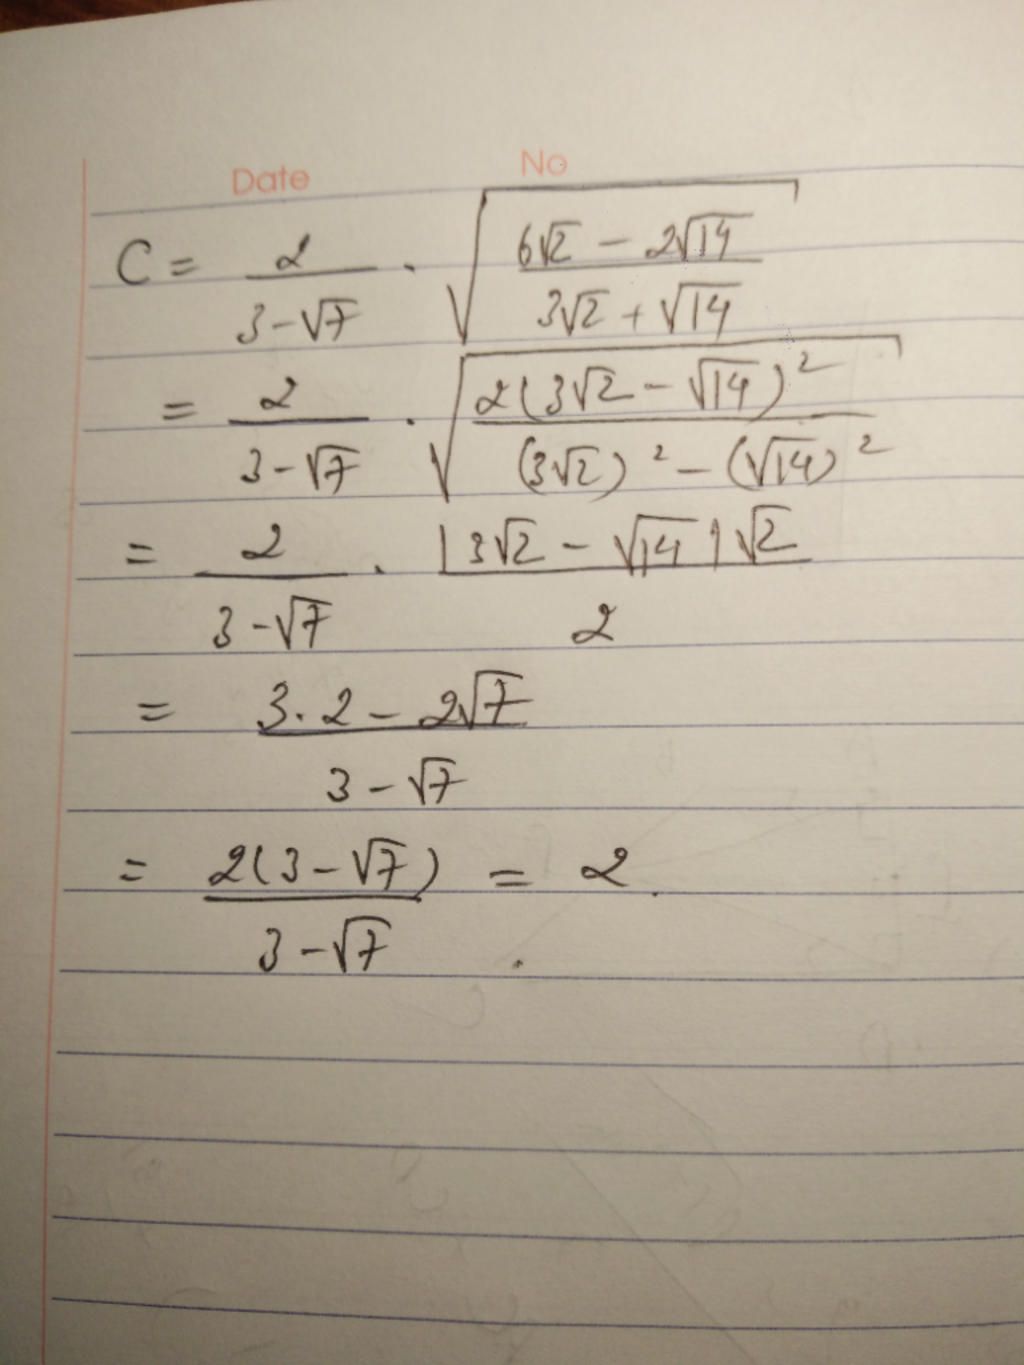 Date No
C = 2/(3-√7) . √((6√2 - 2√14)/(3√2 + √14))
= 2/(3-√7) . √((2(3√2 - √14)²)/((3√2)² - (√14)²))
= 2/(3-√7) . (|3√2 - √14|√2)/2
= (3.2 - 2√7)/(3-√7)
= (2(3-√7))/(3-√7) = 2.